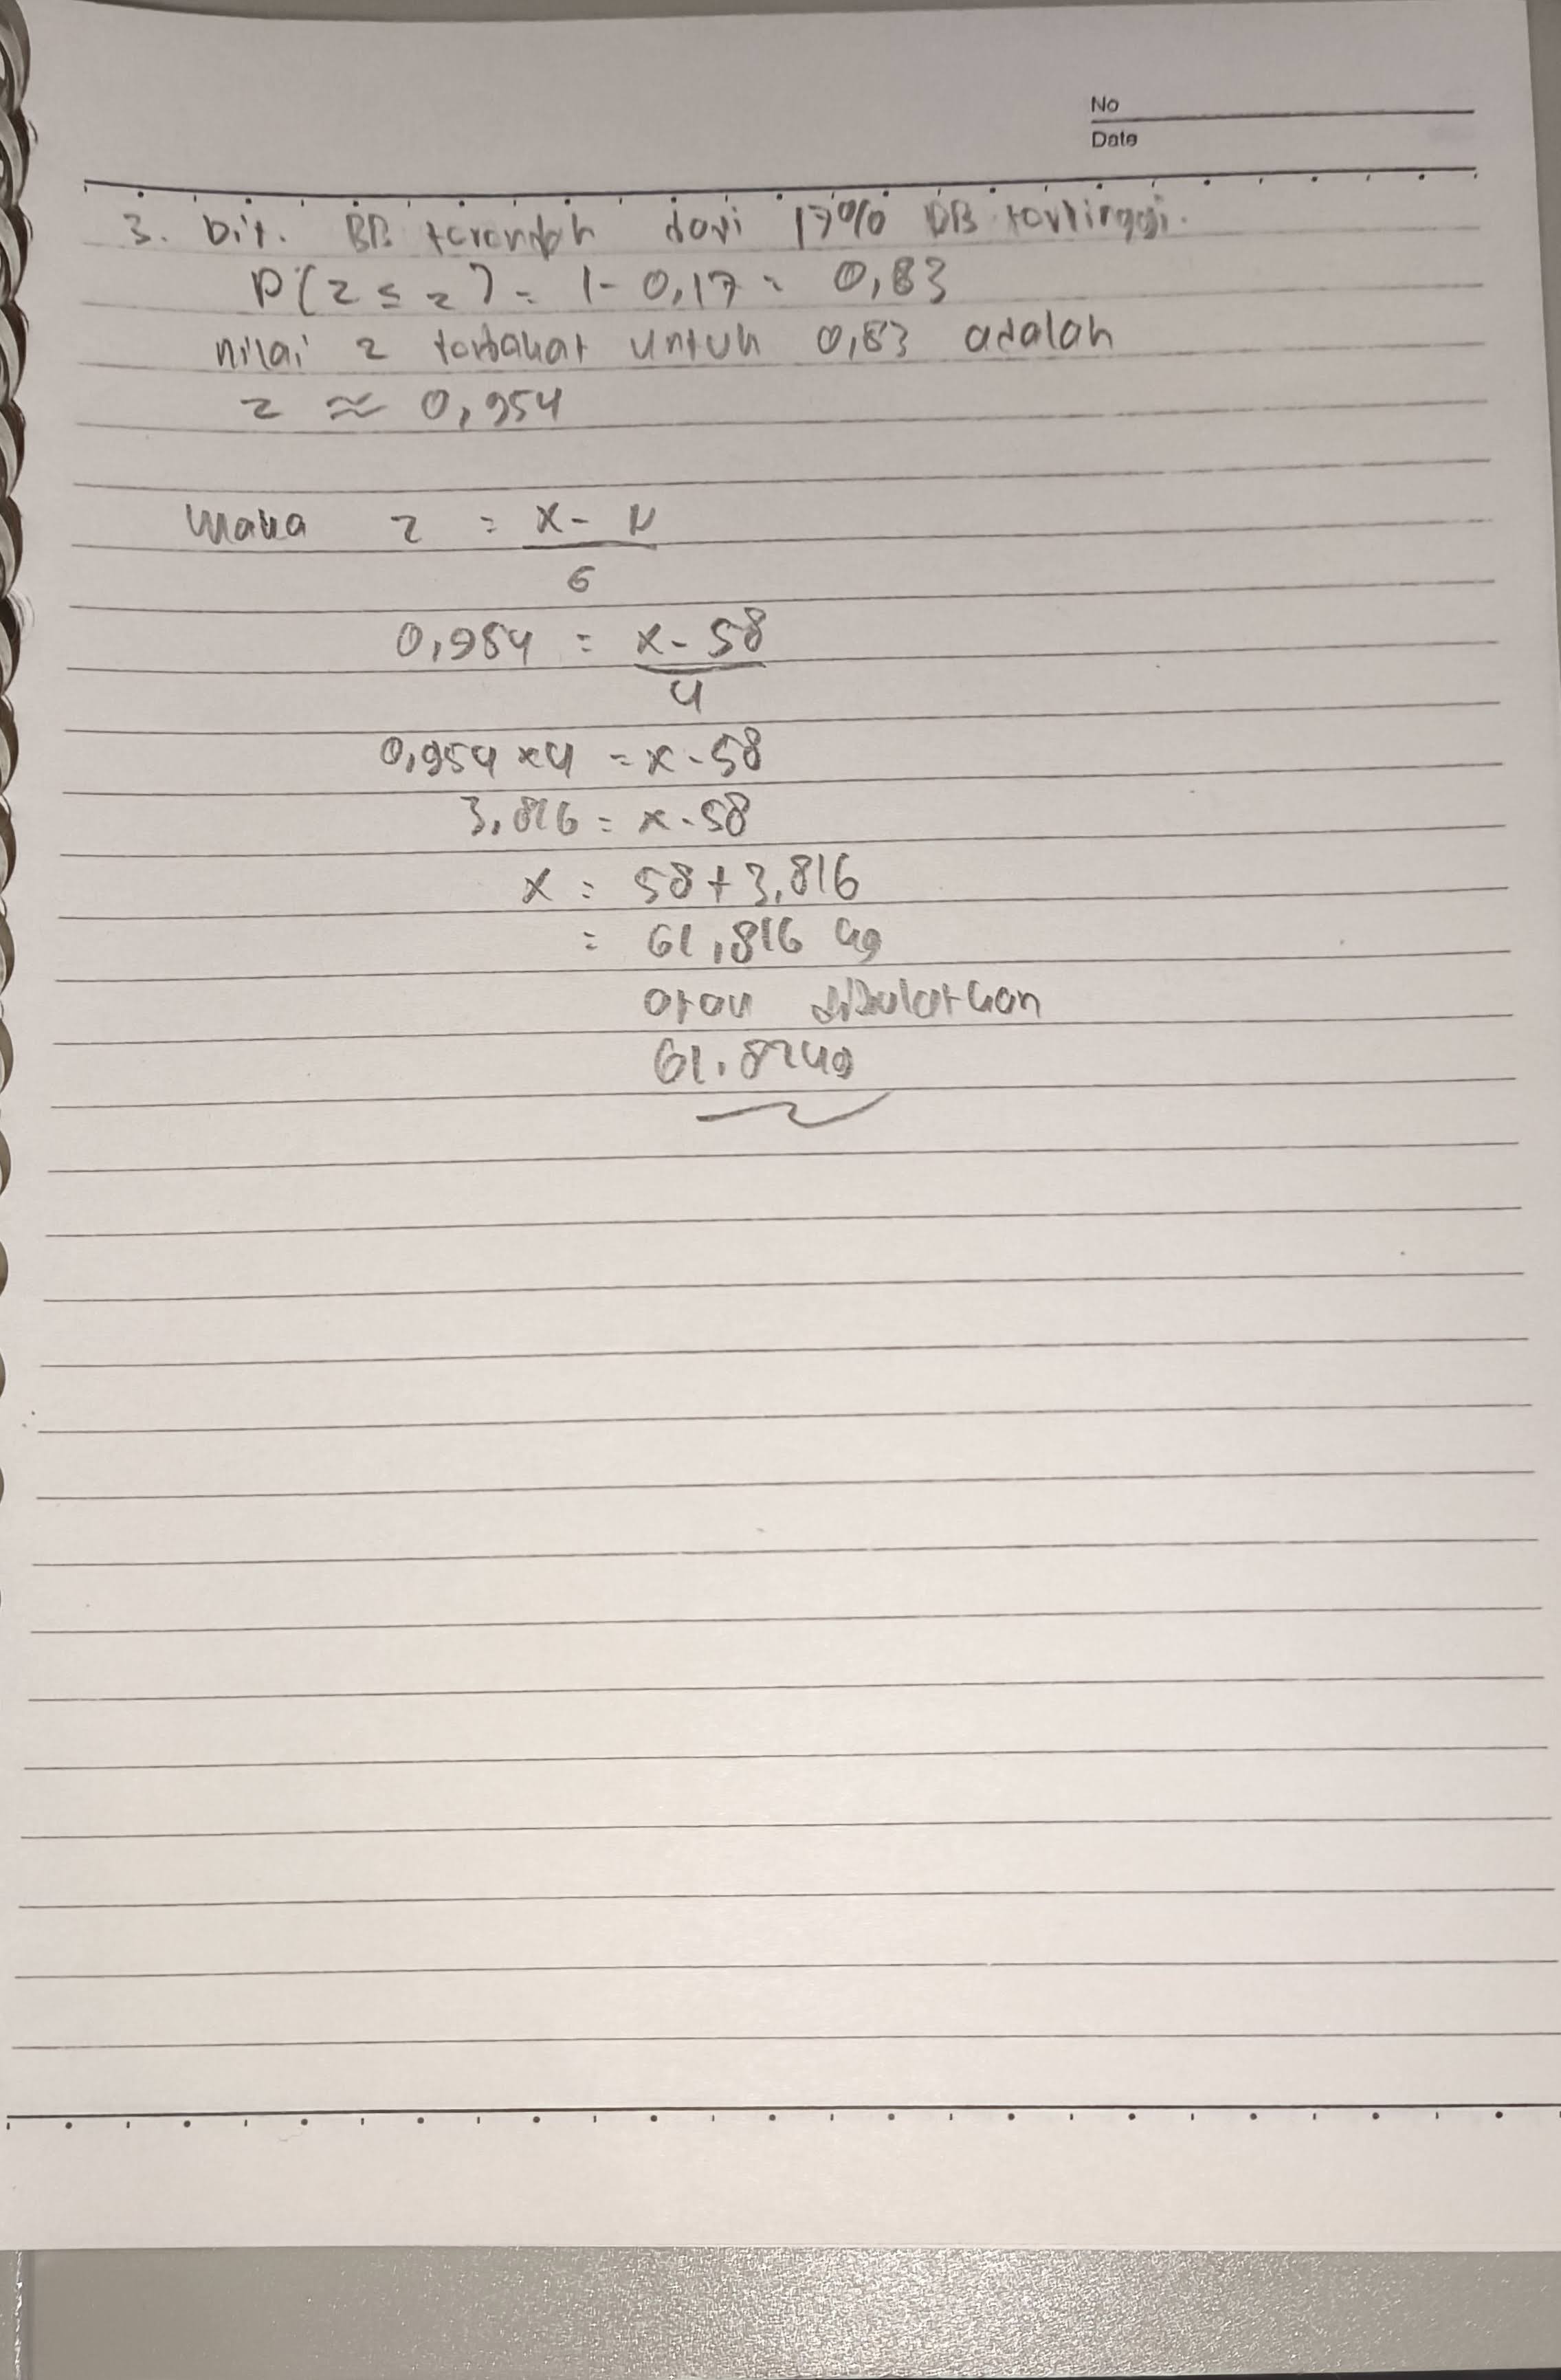 No
Date
3. Dit. BB terendah dari 17% BB tertinggi.
P(z ≤ z) = 1 - 0,17 = 0,83
nilai z terdekat untuk 0,83 adalah
z ≈ 0,954
Maka z = x - μ
σ
0,954 = x - 58
4
0,954 x 4 = x - 58
3,816 = x - 58
x = 58 + 3,816
= 61,816 kg
atau dibulatkan
61,82 kg